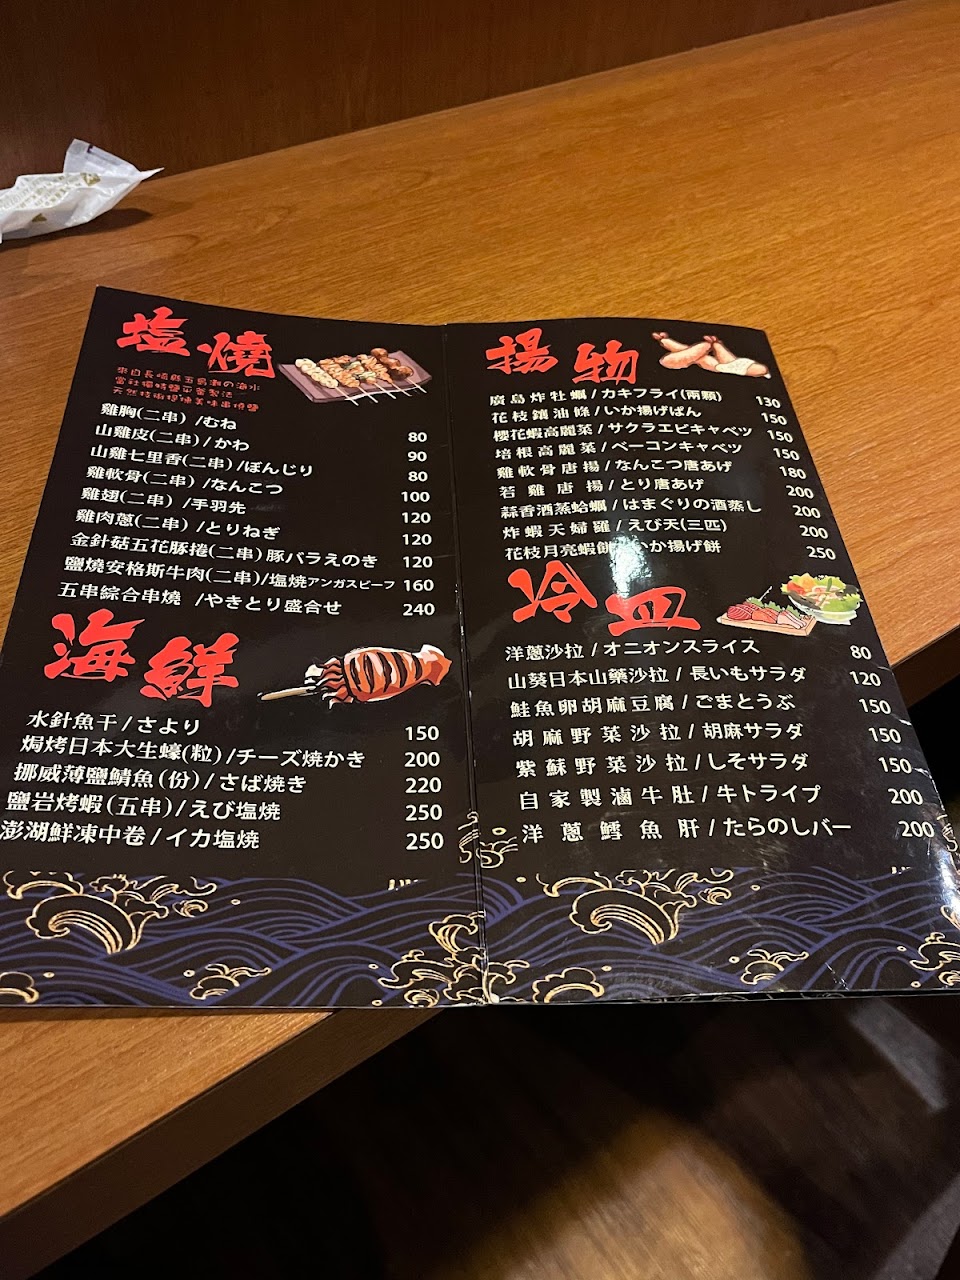 塩燒
來自長崎縣五島灘の海水
當社獨特鹽平釜製法
天然技術提煉美味串燒鹽
雞胸(二串)/むね 80
山雞皮(二串)/かわ 90
山雞七里香(二串)/ぼんじり 80
雞軟骨(二串)/なんこつ 100
雞翅(二串) /手羽先 120
雞肉蔥(二串) /とりねぎ 120
金針菇五花豚捲(二串)豚バラえのき 120
鹽燒安格斯牛肉(二串)/塩焼アンガスビーフ 160
五串綜合串燒 /やきとり盛合せ 240
海鮮
水針魚干/さより 150
焗烤日本大生蠔(粒)/チーズ焼かき 200
挪威薄鹽鯖魚(份)/さば焼き 220
鹽岩烤蝦(五串)/えび塩焼 250
澎湖鮮凍中卷/イカ塩焼 250
揚物
廣島炸牡蠣/カキフライ(兩顆) 130
花枝鑲油條/いか揚げぱん 150
櫻花蝦高麗菜/サクラエビキャベツ 150
培根高麗菜/ベーコンキャベツ 150
雞軟骨唐揚/なんこつ唐あげ 180
若雞唐揚/とり唐あげ 200
蒜香酒蒸蛤蠣/はまぐりの酒蒸し 200
炸蝦天婦羅/えび天(三匹) 200
花枝月亮蝦餅/いか揚げ餅 250
冷皿
洋蔥沙拉/オニオンスライス 80
山葵日本山藥沙拉/長いもサラダ 120
鮭魚卵胡麻豆腐/ごまとうぶ 150
胡麻野菜沙拉/胡麻サラダ 150
紫蘇野菜沙拉/しそサラダ 150
自家製滷牛肚/牛トライプ 200
洋蔥鱈魚肝/たらのしバー 200